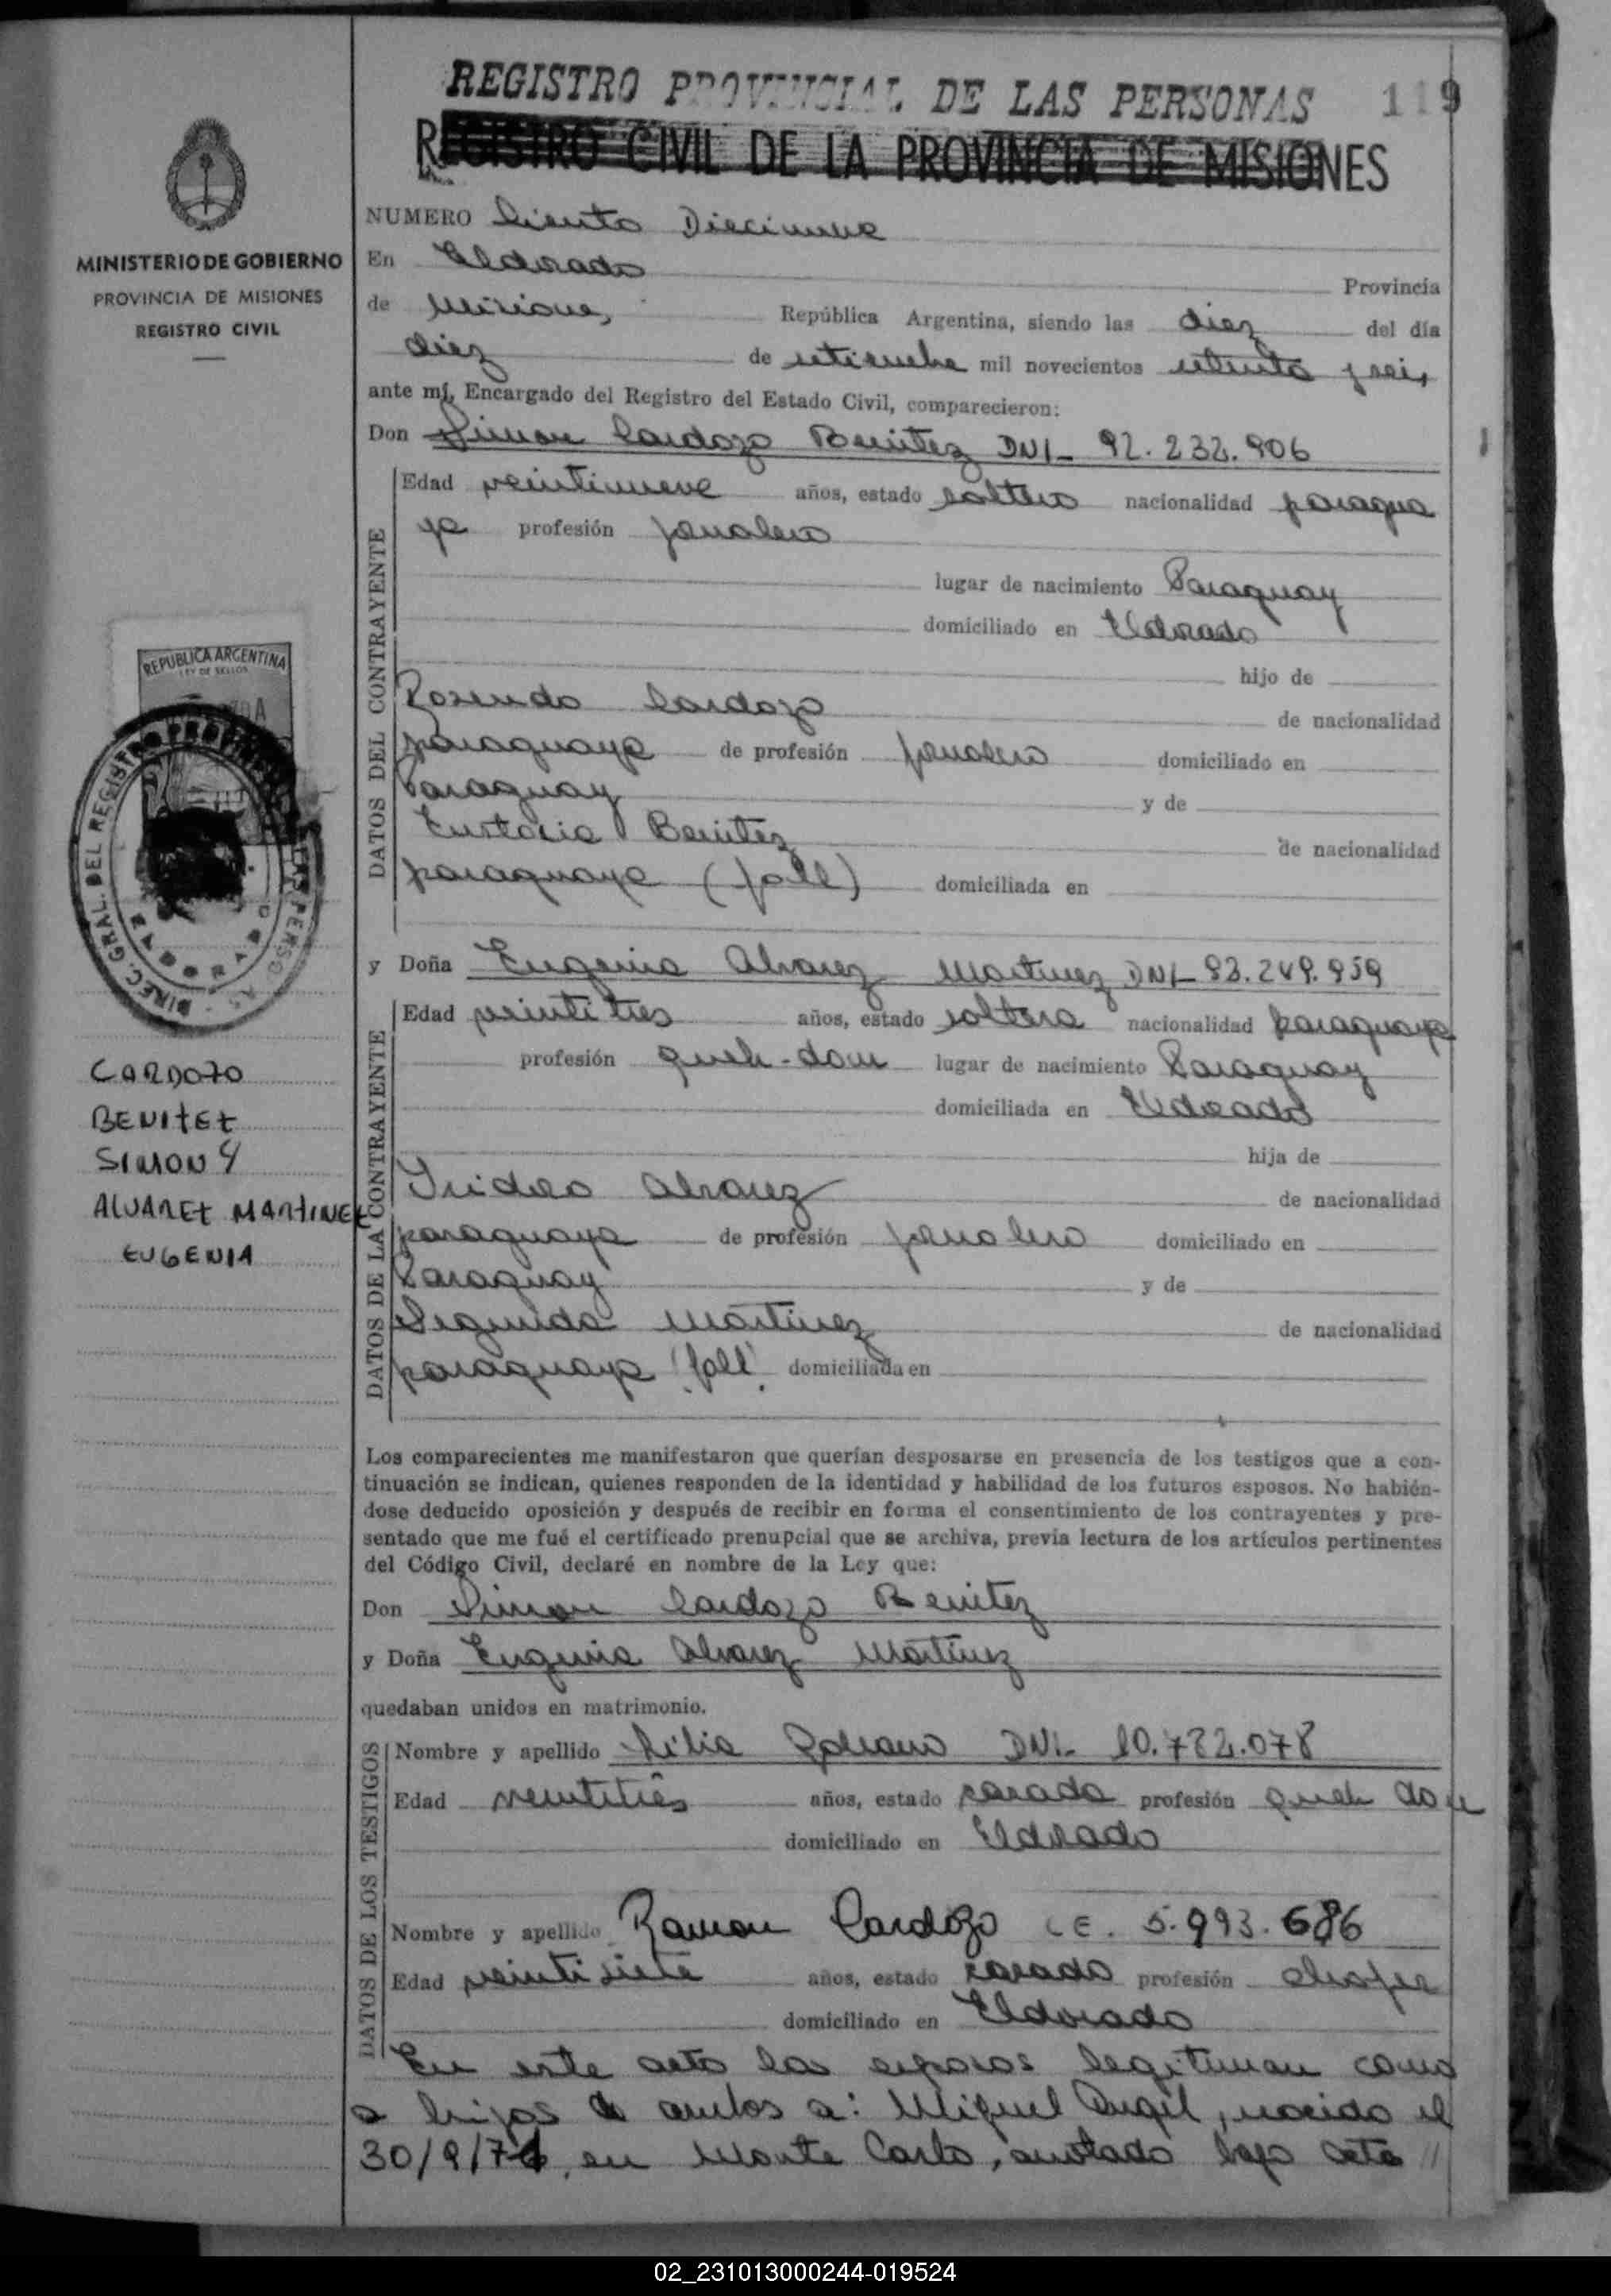 REGISTRO PROVINCIAL DE LAS PERSONAS 119
REGISTRO CIVIL DE LA PROVINCIA DE MISIONES
MINISTERIO DE GOBIERNO
PROVINCIA DE MISIONES
REGISTRO CIVIL
REPUBLICA ARGENTINA
LEY DE SELLOS
DIREC. GRAL. DEL REGISTRO
CARDOZO
BENITEZ
SIMON Y
ALVAREZ MARTINEZ
EUGENIA
NUMERO Ciento Diecinueve
En Eldorado Provincia
de Misiones República Argentina, siendo las diez del día
diez de setiembre mil novecientos setenta y seis
ante mí, Encargado del Registro del Estado Civil, comparecieron:
Don Simon Cardozo Benitez DNI- 92.232.906
DATOS DEL CONTRAYENTE
Edad veintinueve años, estado soltero nacionalidad paragua
ya profesión jornalero
lugar de nacimiento Paraguay
domiciliado en Eldorado
hijo de
Rosendo Cardozo de nacionalidad
paraguaya de profesión jornalero domiciliado en
Paraguay y de
Eustacia Benitez de nacionalidad
paraguaya (fall) domiciliada en
y Doña Eugenia Alvarez Martinez DNI- 92.249.959
DATOS DE LA CONTRAYENTE
Edad veintitres años, estado soltera nacionalidad paraguaya
profesión queh-dom lugar de nacimiento Paraguay
domiciliada en Eldorado
hija de
Isidro Alvarez de nacionalidad
paraguaya de profesión jornalero domiciliado en
Paraguay y de
Segunda Martinez de nacionalidad
paraguaya (fall) domiciliada en
Los comparecientes me manifestaron que querían desposarse en presencia de los testigos que a con-
tinuación se indican, quienes responden de la identidad y habilidad de los futuros esposos. No habién-
dose deducido oposición y después de recibir en forma el consentimiento de los contrayentes y pre-
sentado que me fué el certificado prenupcial que se archiva, previa lectura de los artículos pertinentes
del Código Civil, declaré en nombre de la Ley que:
Don Simon Cardozo Benitez
y Doña Eugenia Alvarez Martinez
quedaban unidos en matrimonio.
DATOS DE LOS TESTIGOS
Nombre y apellido Lilia DNI- 10.782.078
Edad veintitrés años, estado casada profesión queh dom
domiciliado en Eldorado
Nombre y apellido Ramon Cardozo CE. 5.993.686
Edad veintisiete años, estado casado profesión chofer
domiciliado en Eldorado
En este acto los esposos legitiman como
a hijos de ambos a: Miguel Angel, nacido el
30/9/74, en Monte Carlo, anotado bajo acta //
02_231013000244-019524